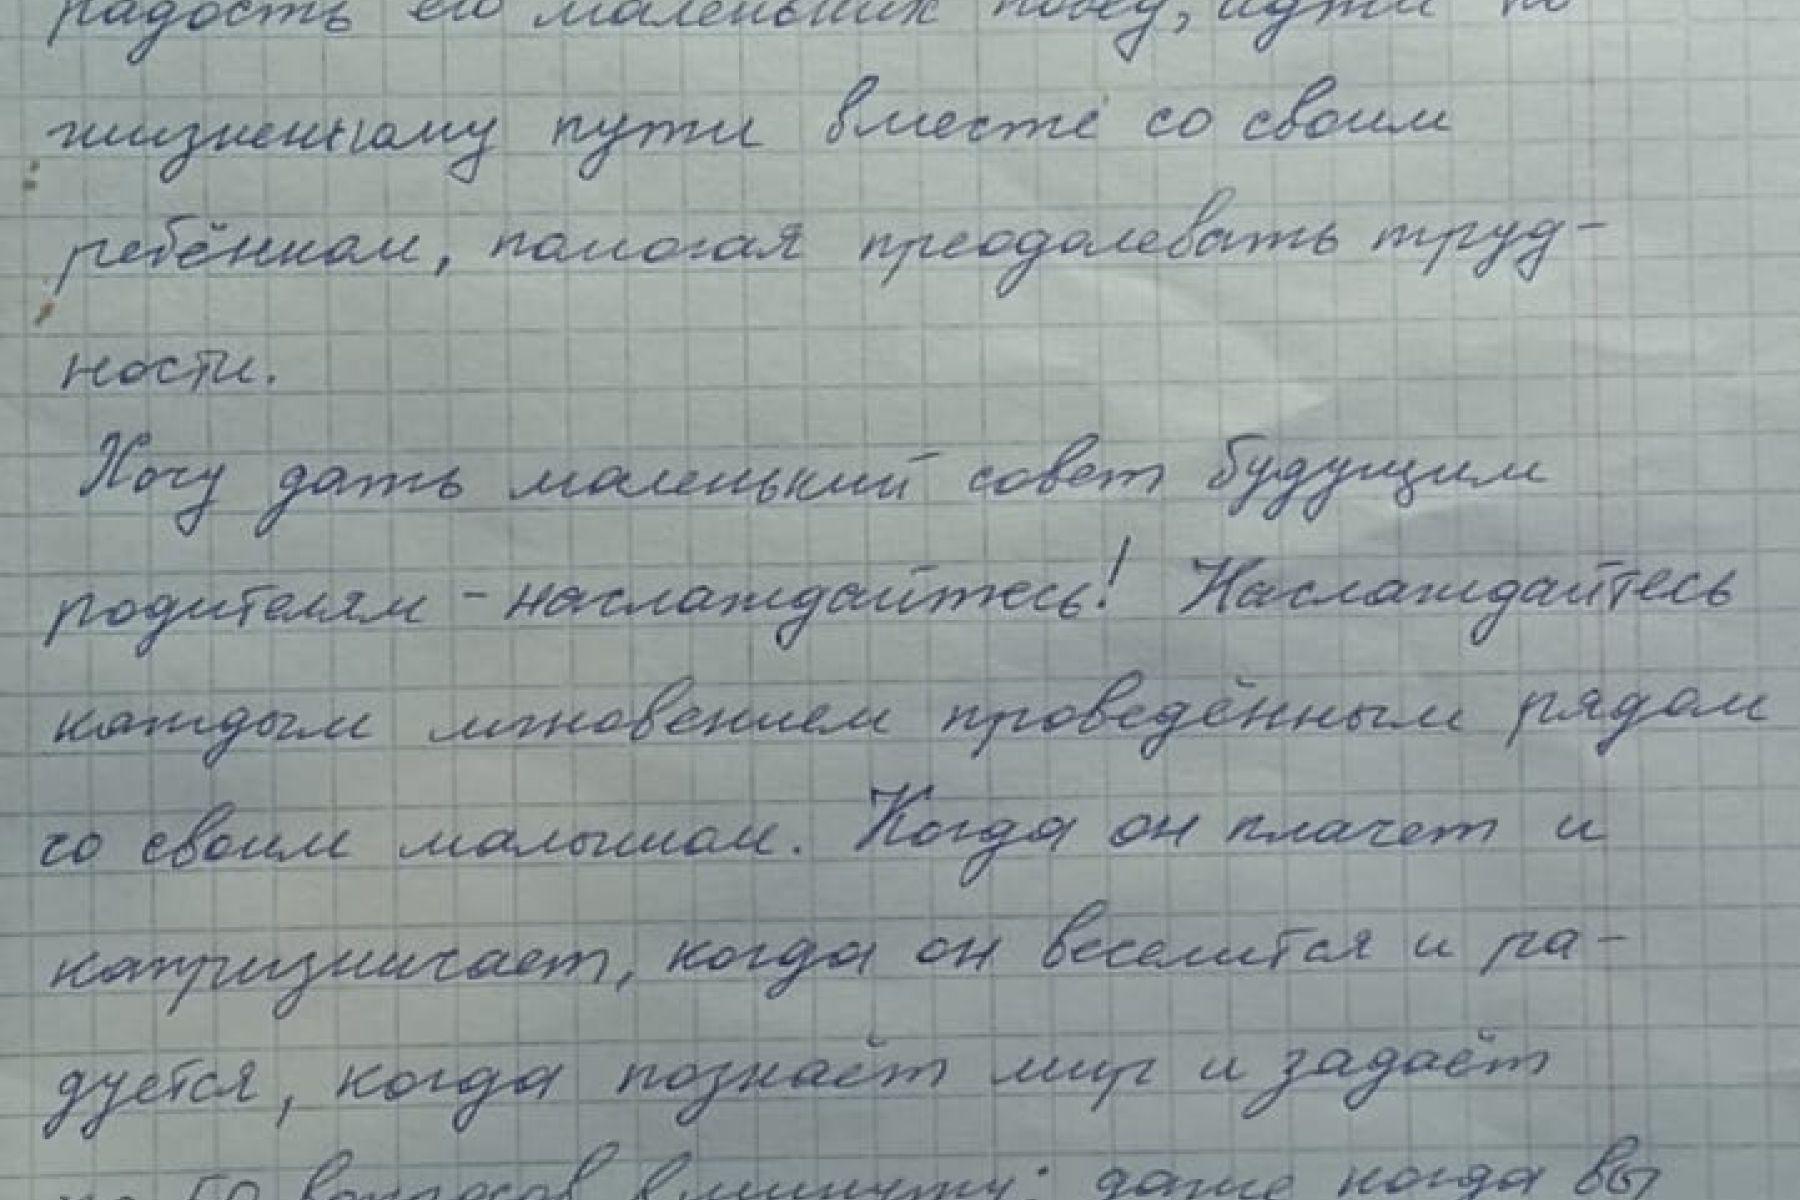 радость его маленьких побед, идти по
жизненному пути вместе со своим
ребёнком, помогая преодолевать труд-
ности.
Хочу дать маленький совет будущим
родителям - наслаждайтесь! Наслаждайтесь
каждым мгновением проведённым рядом
со своим малышом. Когда он плачет и
капризничает, когда он веселится и ра-
дуется, когда познаёт мир и задаёт
по 50 вопросов в минуту; даже когда вы